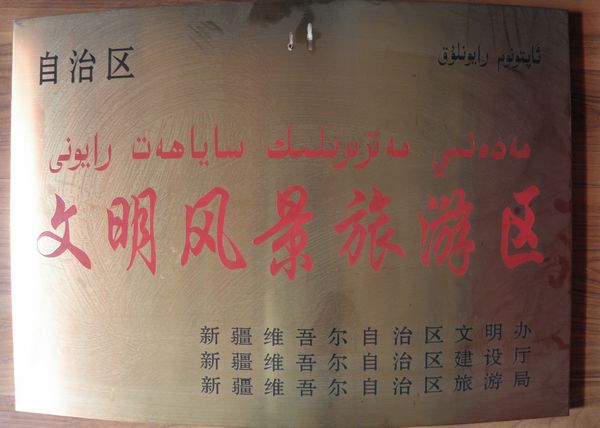 自治区
ئاپتونوم رايونلۇق
مەدەنىي مەنزىرىلىك ساياھەت رايونى
文明风景旅游区
新疆维吾尔自治区文明办
新疆维吾尔自治区建设厅
新疆维吾尔自治区旅游局